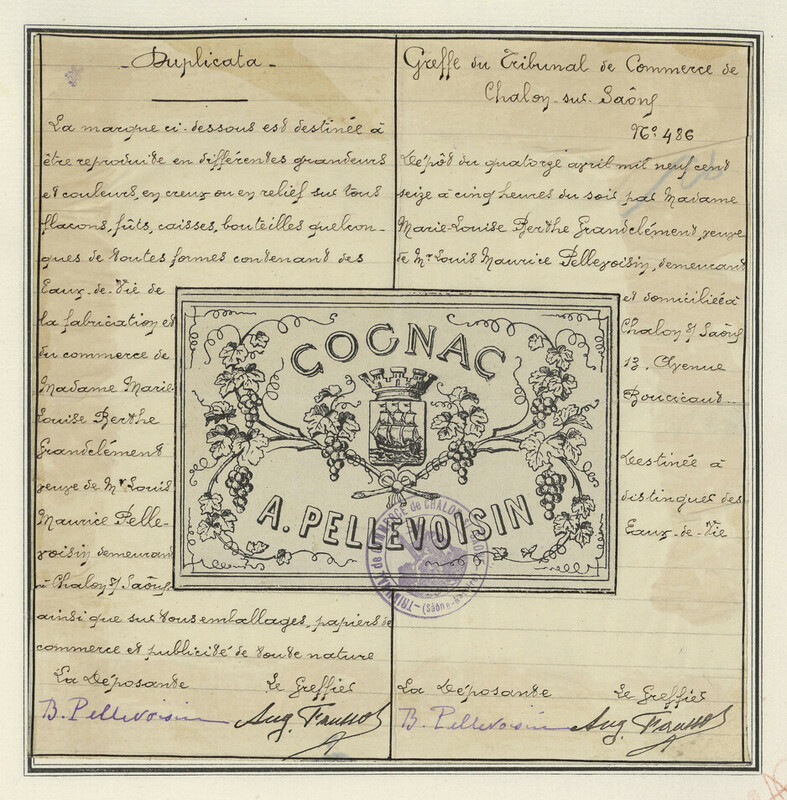 - Duplicata -
La marque ci-dessous est destinée à
être reproduite en différentes grandeurs
et couleurs, en creux ou en relief sur tous
flacons, fûts, caisses, bouteilles quelcon-
ques de toutes formes contenant des
Eaux-de-Vie de
la fabrication et
du commerce de
Madame Marie-
Louise Berthe
Grandclément
veuve de Mr Louis
Maurice Pelle-
voisin demeurant
à Chalon s/ Saône
ainsi que sur tous emballages, papiers de
commerce et publicité de toute nature
La Déposante Le Greffier
B. Pellevoisin Aug.
Greffe du Tribunal de Commerce de
Chalon-sur-Saône
No 486
Dépôt du quatorze avril mil neuf cent
seize à cinq heures du soir par Madame
Marie-Louise Berthe Grandclément, veuve
de Mr Louis Maurice Pellevoisin, demeurant
et domiciliée à
Chalon s/ Saône
13, Avenue
Boucicaut.
Destinée à
distinguer des
Eaux-de-Vie
La Déposante Le Greffier
B. Pellevoisin Aug.
COGNAC
A. PELLEVOISIN
TRIBUNAL de COMMERCE de CHALON-S-SAONE
(Saône-